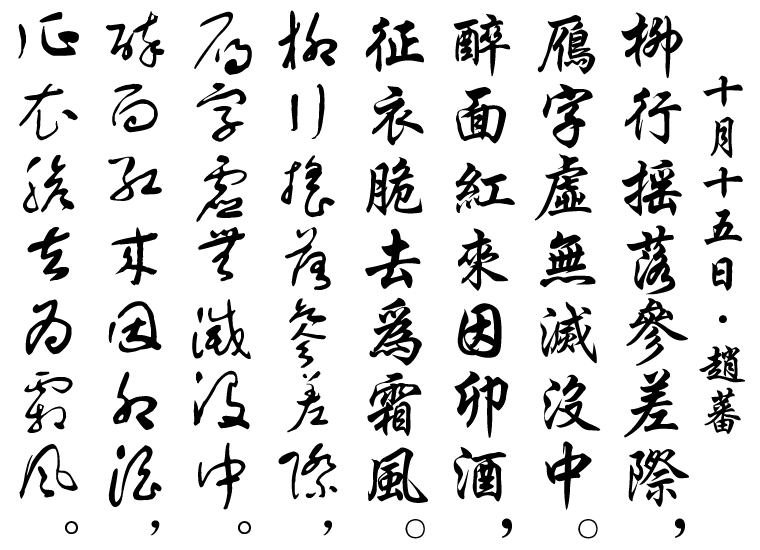 十月十五日·趙蕃
柳行摇落參差際，
鴈字虛無滅没中。
醉面紅來因卯酒，
征衣脆去爲霜風。
柳行摇落參差際，
鴈字虛無滅没中。
醉面紅來因卯酒，
征衣脆去爲霜風。